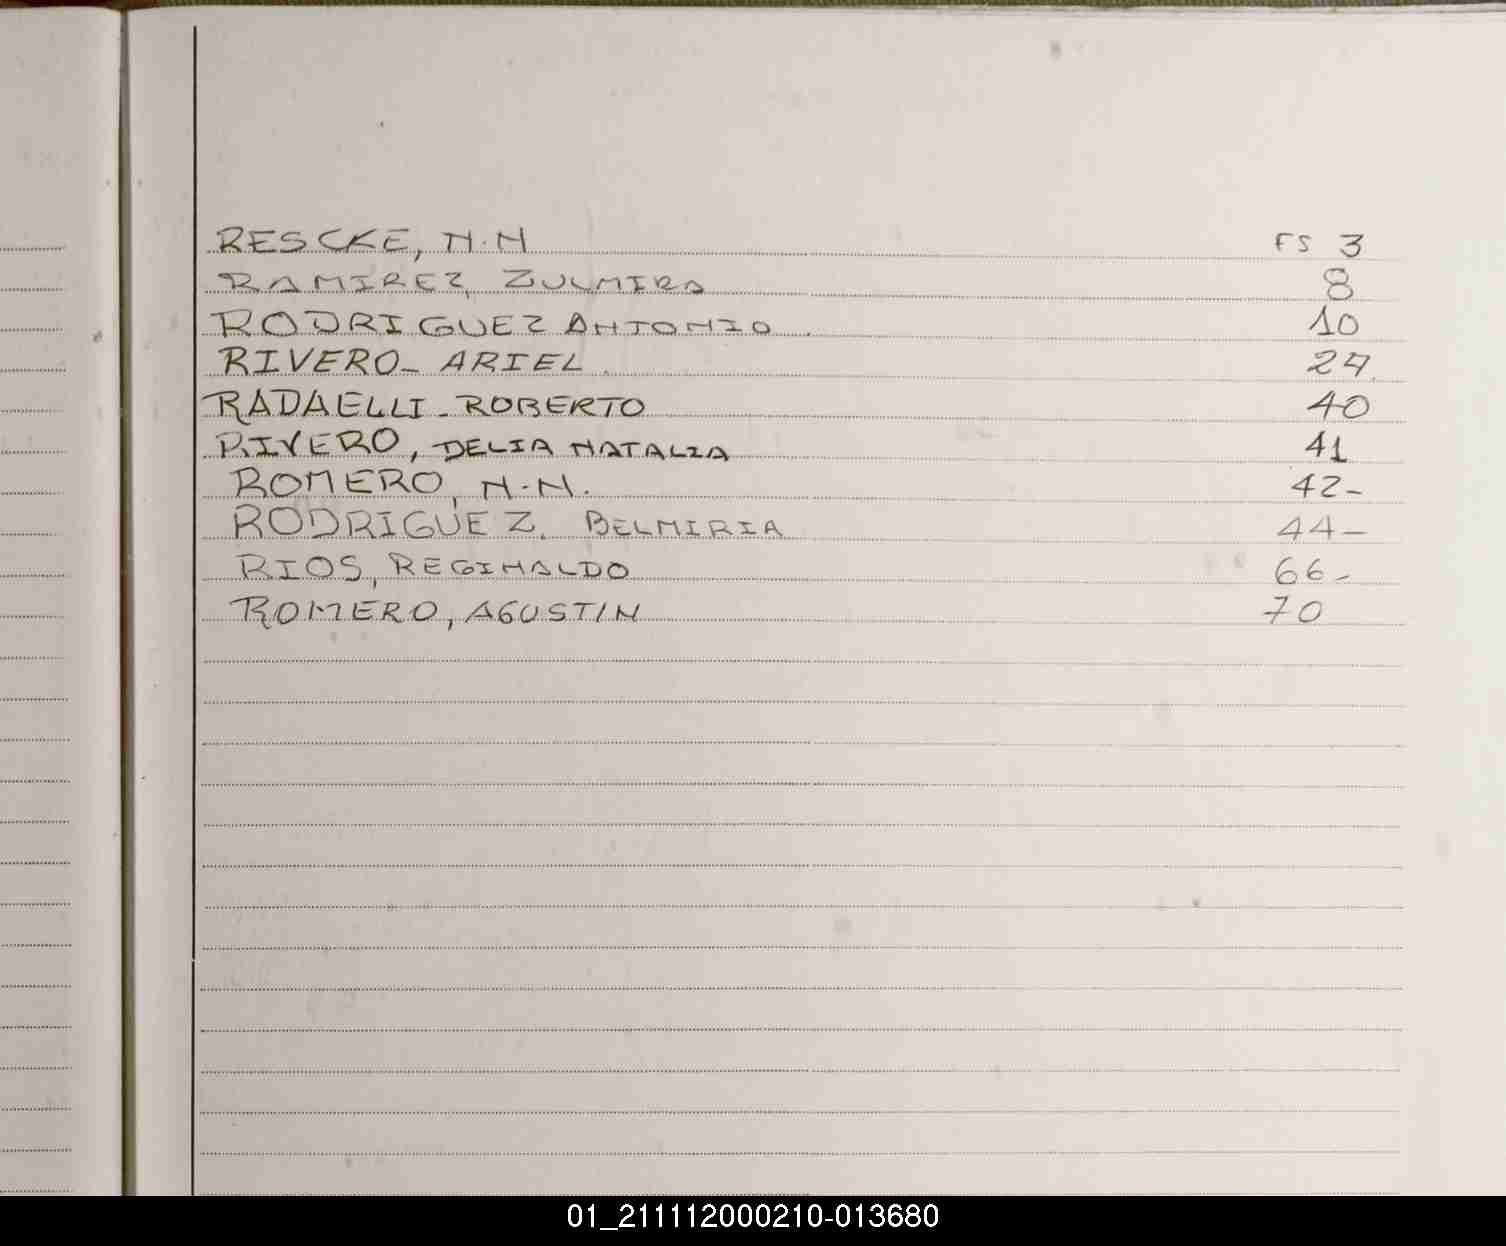 RESCKE, N.N FS 3
RAMIREZ, ZULMIRA 8
RODRIGUEZ ANTONIO. 10
RIVERO- ARIEL. 27.
RADAELLI-ROBERTO 40
RIVERO, DELIA NATALIA 41
ROMERO, N.N. 42-
RODRIGUEZ, BELMIRIA 44-
RIOS, REGINALDO 66-
ROMERO, AGUSTIN 70
01_211112000210-013680